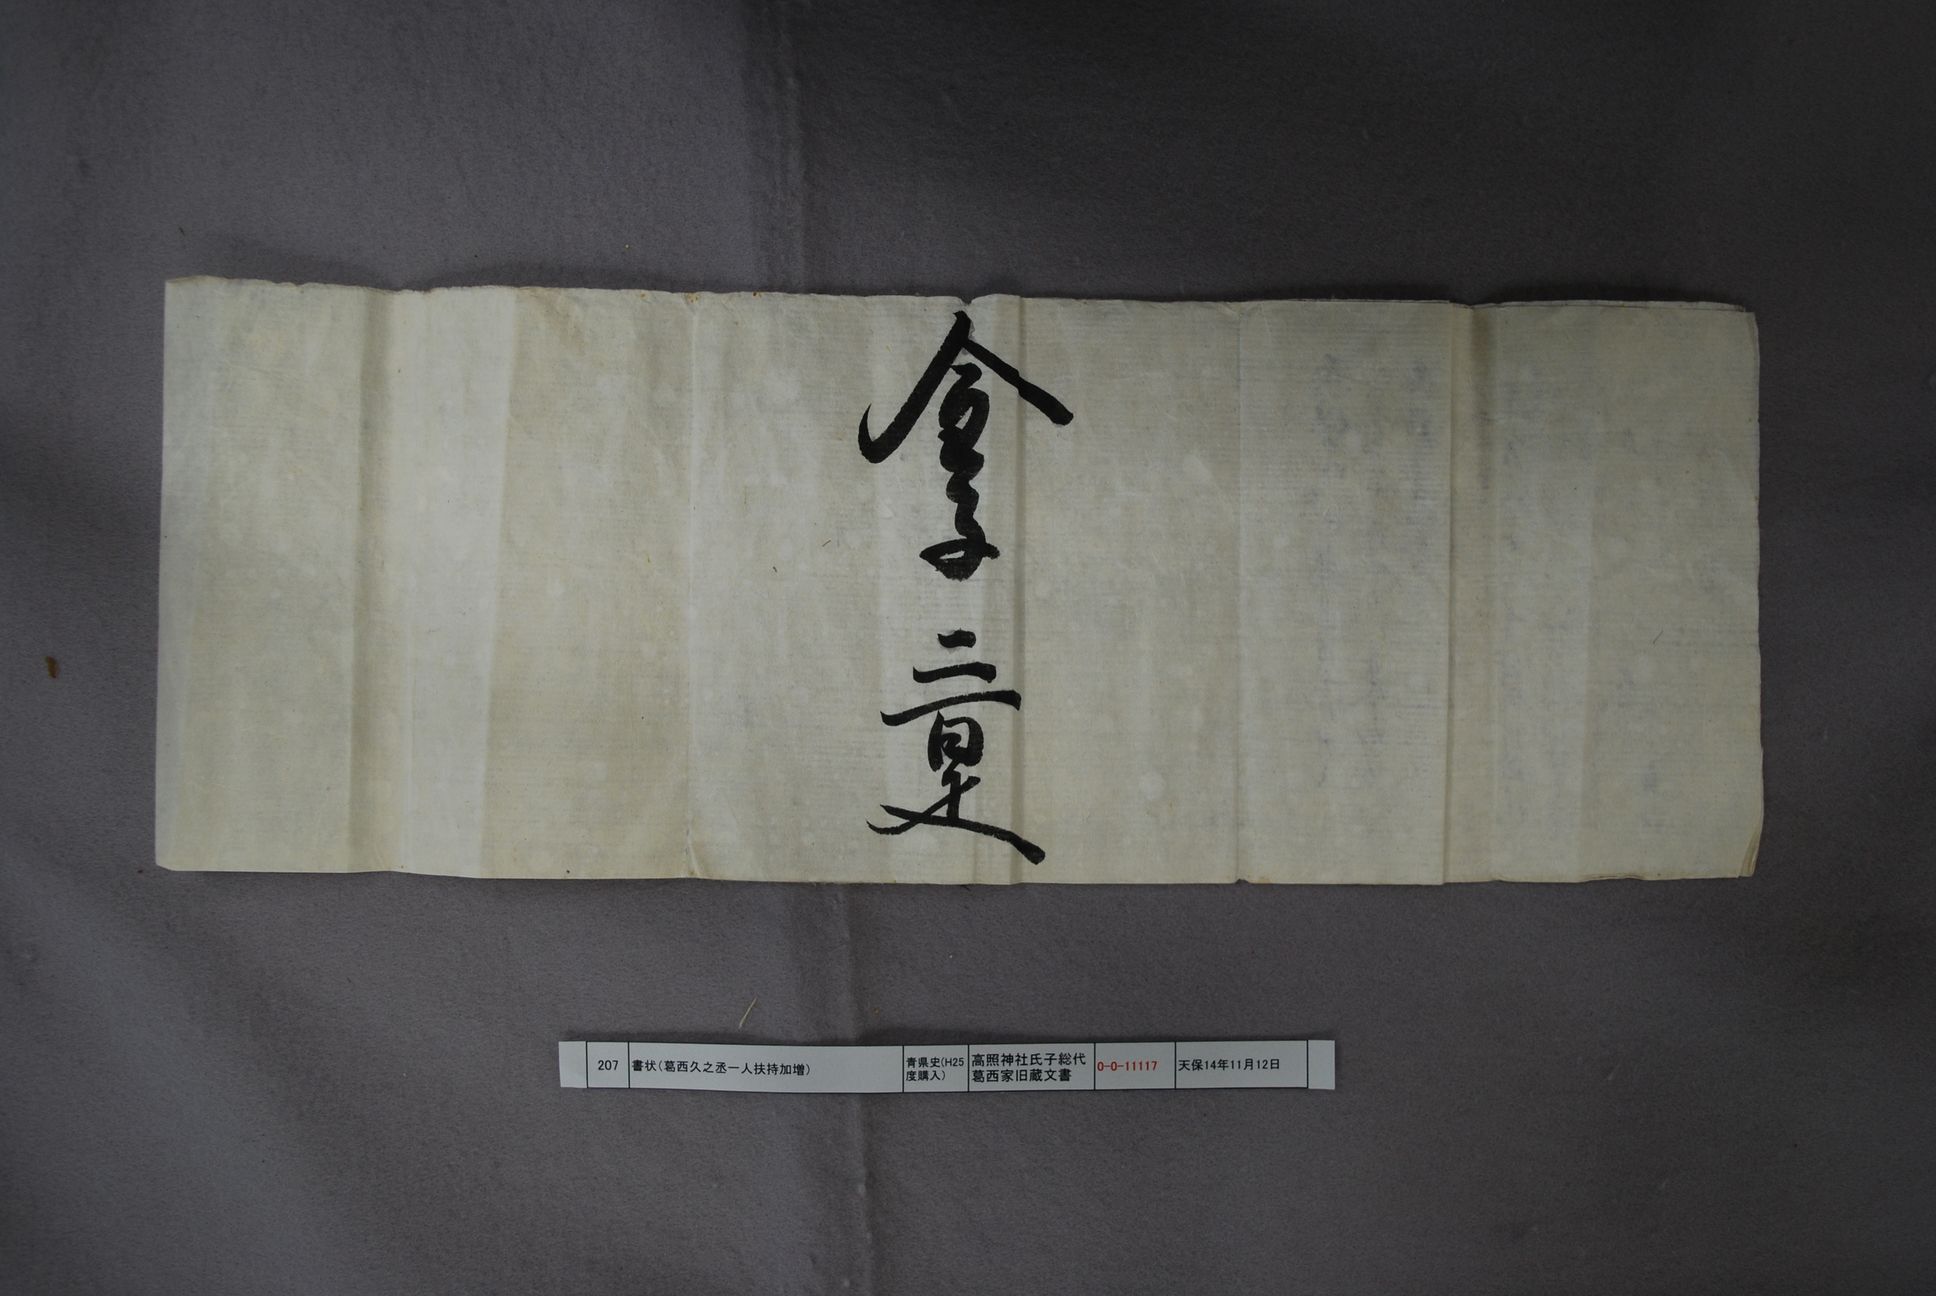 金子 二百疋
207
書状(葛西久之丞一人扶持加増)
青県史(H25
度購入)
高照神社氏子総代
葛西家旧蔵文書
0-0-11117
天保14年11月12日